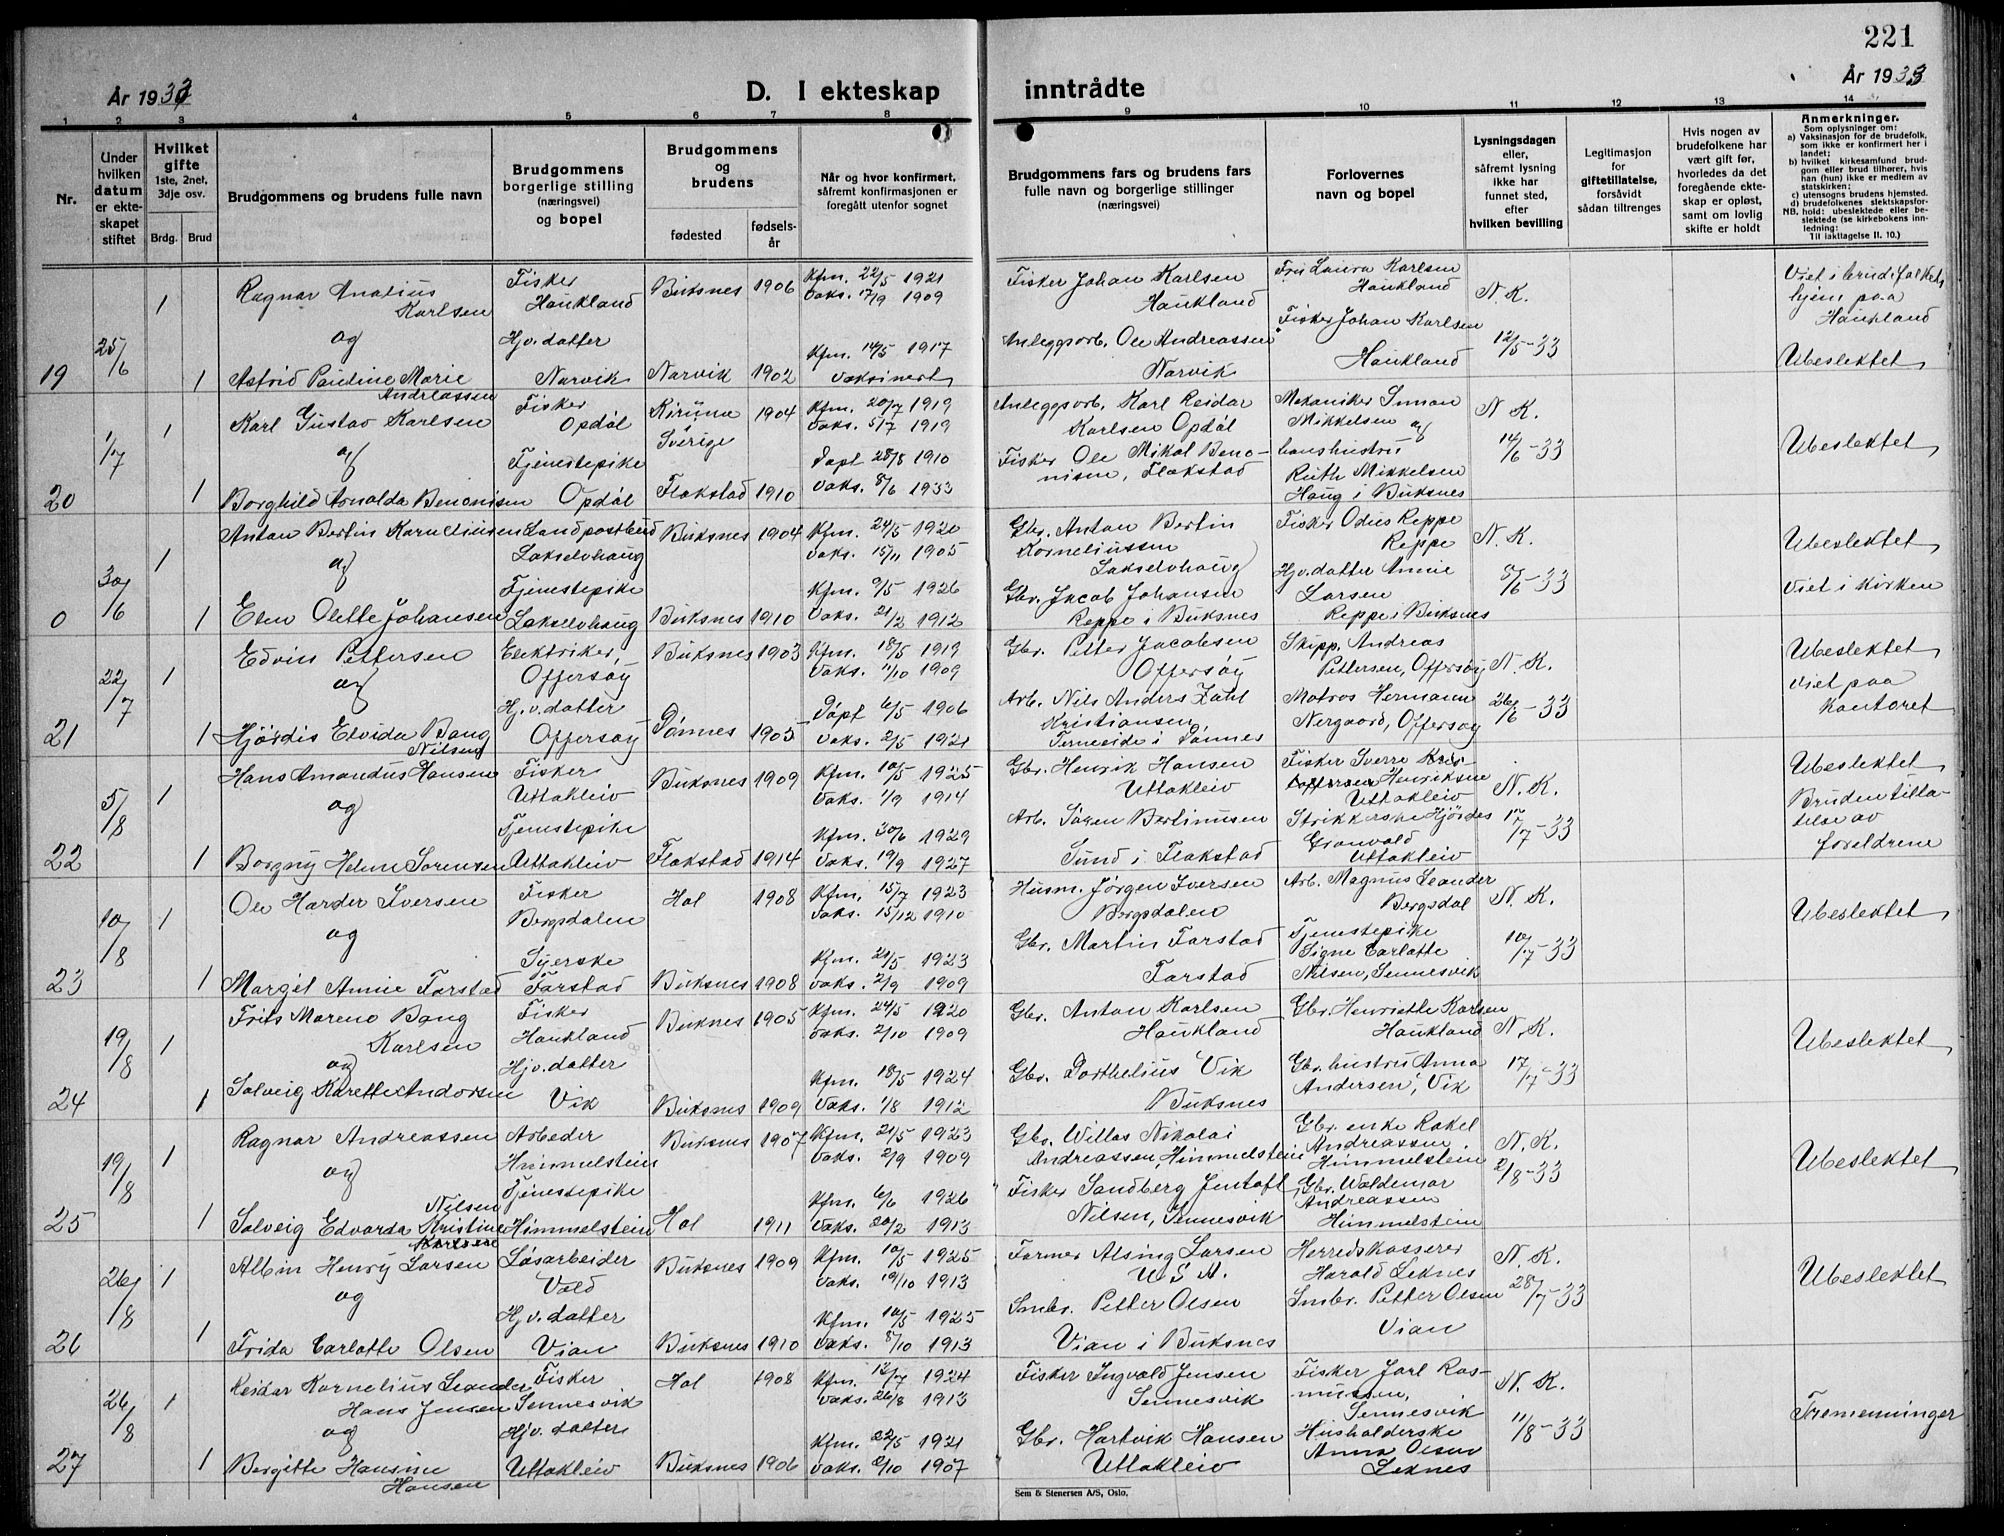 221
År 1933
D. I ekteskap inntrådte
År 1933
1 2 3 4 5 6 7 8 9 10 11 12 13 14
Nr.
Under hvilken datum er ekteskapet stiftet
Hvilket gifte 1ste, 2net, 3dje osv.
Brdg. Brud
Brudgommens og brudens fulle navn
Brudgommens borgerlige stilling (næringsvei) og bopel
Brudgommens og brudens
fødested
fødselsår
Når og hvor konfirmert, såfremt konfirmasjonen er foregått utenfor sognet
Brudgommens fars og brudens fars fulle navn og borgerlige stillinger (næringsvei)
Forlovernes navn og bopel
Lysningsdagen eller, såfremt lysning ikke har funnet sted, efter hvilken bevilling
Legitimasjon for giftetillatelse, forsåvidt sådan tiltrenges
Hvis nogen av brudefolkene har vært gift før, hvorledes da det foregående ekteskap er opløst, samt om lovlig skifte er holdt
Anmerkninger.
Som oplysninger om:
a) Vaksinasjon for de brudefolk, som ikke er konfirmert her i landet;
b) hvilket kirkesamfund brudgom eller brud tilhører, hvis han (hun) ikke er medlem av statskirken;
c) utensogns brudens hjemsted.
d) brudefolkenes slektskapsforhold: ubeslektede eller beslektede (se kirkebokens innledning:
NB.
Til iakttagelse II. 10.)
19 25/6 1 Ragnar Analius Karlsen Fisker Haukland Buksnes 1906 Kfm. 22/5 1921 Vaks. 17/9 1909 Fisker Johan Karlsen Haukland Frü Laura Karlsen Haukland N. K. Viet i brudefolkets hjem paa Haukland
og
1 Astrid Pauline Marie Andreassen Hjv. datter Narvik Narvik 1902 Kfm. 14/5 1917 Vaksinert Anleggsarb. Ole Andreassen Narvik Fisker Johan Karlsen Haukland 12/5-33 Ubeslektet
20 1/7 1 Karl Gustav Karlsen Fisker Opdøl Kiruna Sverige 1904 Kfm. 20/7 1919 Vaks. 5/7 1919 Anleggsarb. Karl Reidar Karlsen Opdøl Mekaniker Mikkelsen og N. K.
og
1 Borghild Arnolda Benonisen Tjenestepike Opdøl Flakstad 1910 Døpt 28/8 1910 Vaks. 8/6 1933 Fisker Ole Mikal Benonisen, Flakstad hans hustru Ruth Mikkelsen Haug i Buksnes 14/6-33 Ubeslektet
0 30/6 1 Anton Bertin Korneliussen Landpostbud Lakselvhaug Buksnes 1904 Kfm. 24/5 1920 Vaks. 15/11 1905 Gbr. Anton Bertin Korneliussen Lakselvhaug Fisker Odin Reppe Reppe N. K. Ubeslektet
og
1 Elen Olette Johansen Tjenestepike Lakselvhaug Buksnes 1910 Kfm. 9/5 1926 Vaks. 21/2 1912 Gbr. Jacob Johansen Reppe i Buksnes Hjv. datter Annie Larsen Reppe i Buksnes 8/6-33 Viet i kirken
21 22/7 1 Edvin Pettersen Elektriker, Offersøy Buksnes 1903 Kfm. 18/5 1919 Vaks. 11/10 1909 Gbr. Petter Jacobsen Offersøy Skipp. Andreas Pettersen, Offersøy N. K. Ubeslektet
og
1 Hjørdis Elvida Bang Nilsen Hj. v. datter Offersøy Dønnes 1905 Døpt 6/5 1906 Vaks. 2/5 1921 Arb. Nils Anders Zahl Kristiansen, i Dønnes Matros Hermann Nergaard, Offersøy 26/6-33 Viet paa kontoret
22 5/8 1 Hans Amandus Hansen Fisker Uttakleiv Buksnes 1909 Kfm. 10/5 1925 Vaks. 1/9 1914 Gbr. Henrik Hansen Uttakleiv Fisker Sverre Henriksen Uttakleiv N. K. Ubeslektet
og
1 Borgny Helene Sørensen Tjenestepike Uttakleiv Flakstad 1914 Kfm. 30/6 1929 Vaks. 19/9 1927 Arb. Søren Bertinusen Sund i Flakstad Strikkerske Hjørdis Granvold Uttakleiv 17/7-33 Bruden tillatelse av foreldrene
23 10/8 1 Ole Harder Iversen Fisker Bergsdalen Hol 1908 Kfm. 15/7 1923 Vaks. 15/12 1910 Husm. Jørgen Iversen Bergsdalen Arb. Magnus Leander Bergsdal N. K. Ubeslektet
og
1 Margit Annie Farstad Syerske Farstad Buksnes 1908 Kfm. 24/5 1923 Vaks. 2/9 1909 Gbr. Martin Farstad Farstad Tjenestepike Signe Carlotte Nilsen, Sennesvik 10/7-33
24 19/8 1 Frits Moreno Bang Karlsen Fisker Haukland Buknes 1905 Kfm. 24/5 1920 Vaks. 2/10 1909 Gbr. Anton Karlsen Haukland Gbr. Henriette Karlsen Haukland N. K. Ubeslektet
og
1 Solveig Karette Andorsen Hjv. datter Vik Buksnes 1909 Kfm. 18/5 1924 Vaks. 1/8 1912 Gbr. Dorthelius Vik Buksnes Gbr. hustru Anna Andersen, Vik 17/7-33
25 19/8 1 Ragnar Andreassen Arbeder Himmelstein Buksnes 1907 Kfm. 21/5 1923 Vaks. 2/9 1909 Gbr. Willas Nikolai Andreassen, Himmelstein Gbr. enke Rakel Andreassen Himmelstein N. K. Ubeslektet
og
1 Solveig Edvarda Kristine Nilsen Tjenestepike Himmelstein Hol 1911 Kfm. 6/6 1926 Vaks. 20/2 1913 Fisker Sandberg Jentoft Nilsen, Sennesvik Gbr. Waldemar Andreassen Himmelstein 2/8-33
26 26/8 1 Albin Henry Larsen Løsarbeider Vold Buksnes 1909 Kfm. 10/5 1925 Vaks. 19/10 1913 Farmer Alsing Larsen U S A. Herredskasserer Harald Leknes N. K. Ubeslektet
og
1 Frida Carlotte Olsen Hj. v. datter Vian Buksnes 1910 Kfm. 10/5 1925 Vaks. 8/10 1913 Smbr. Petter Olsen Vian i Buksnes Smbr. Petter Olsen Vian 28/7-33
27 26/8 1 Reidar Kornelius Leander Hans Jensen Fisker Sennesvik Hol 1908 Kfm. 12/7 1924 Vaks. 26/8 1913 Fisker Ingvald Jensen Sennesvik Fisker Jarl Rasmussen, Sennesvik N. K. Tremenninger
og
1 Bergitte Hansine Hansen Hjv. datter Uttakleiv Buksnes 1906 Kfm. 22/5 1921 Vaks. 2/10 1907 Gbr. Hartvik Hansen Uttakleiv Husholderske Anna Olsen Leknes 11/8-33
Sem & Stenersen A/S, Oslo.